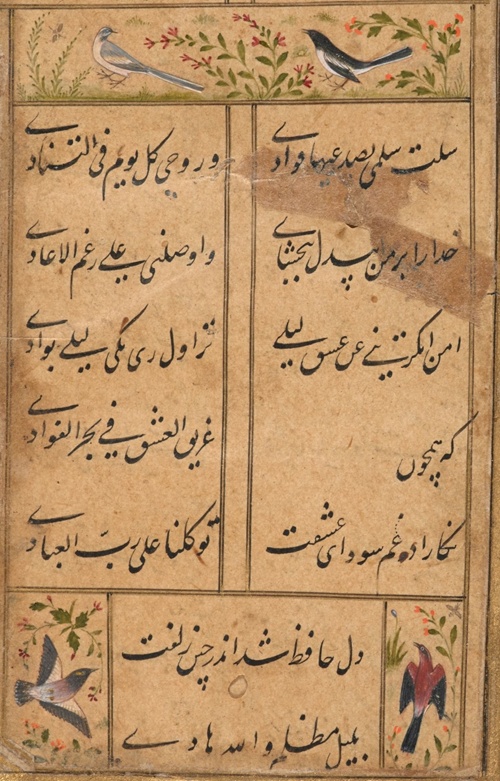 سلت سلمی بصدغیها فوادی وروحی کل یوم فی التنادی
خدارا بر من بیدل ببخشای واوصلنی علی رغم الاعادی
امن انکرتنی عن عشق لیلی تزاول ری نکی لیلی بوادی
که همچون غریق العشق فی بحر الفوادی
نکارا در غم سودای عشقت توکلنا علی ربّ العبادی
دل حافظ شد اندر چین زلفت
بلیل مظلم والله هادی